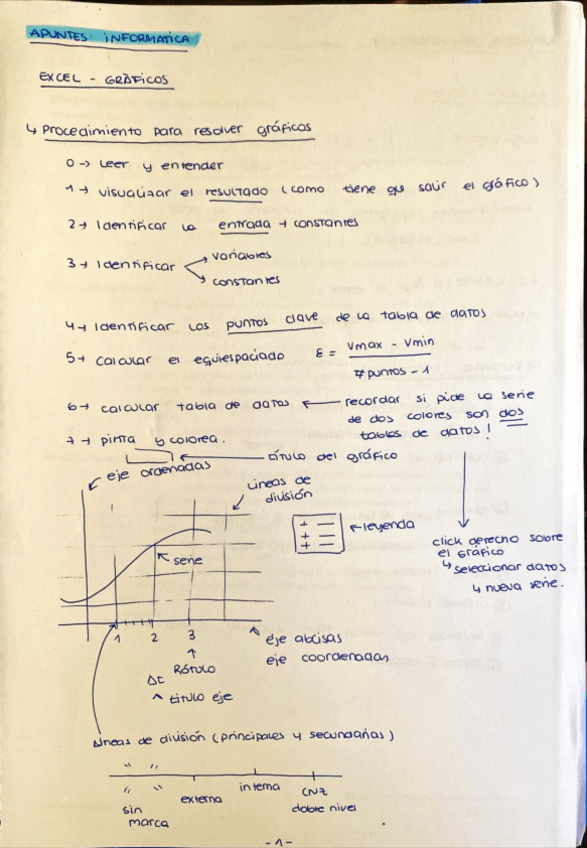 APUNTES: INFORMATICA
EXCEL - GRÁFICOS
↳ Procedimiento para resolver gráficos
0 → Leer y entender
1 → visualizar el resultado (como tiene que salir el gráfico)
2 → Identificar la entrada → constantes
3 → Identificar
variables
constantes
4 → Identificar los puntos clave de la tabla de datos
5 → calcular el equiespaciado
ε = Vmax - Vmin
# puntos - 1
6 → calcular tabla de datos ← recordar si pide la serie
de dos colores son dos
tablas de datos!
7 → pinta y colorea.
título del gráfico
eje ordenadas
Líneas de
división
leyenda
serie
click derecho sobre
el gráfico
↳ seleccionar datos
↳ nueva serie.
1 2 3
eje abcisas
eje coordenadas
Rótulo
Δt
título eje
Líneas de división (principales y secundarias)
sin
marca
externa
interna
cruz
doble nivel
-1-